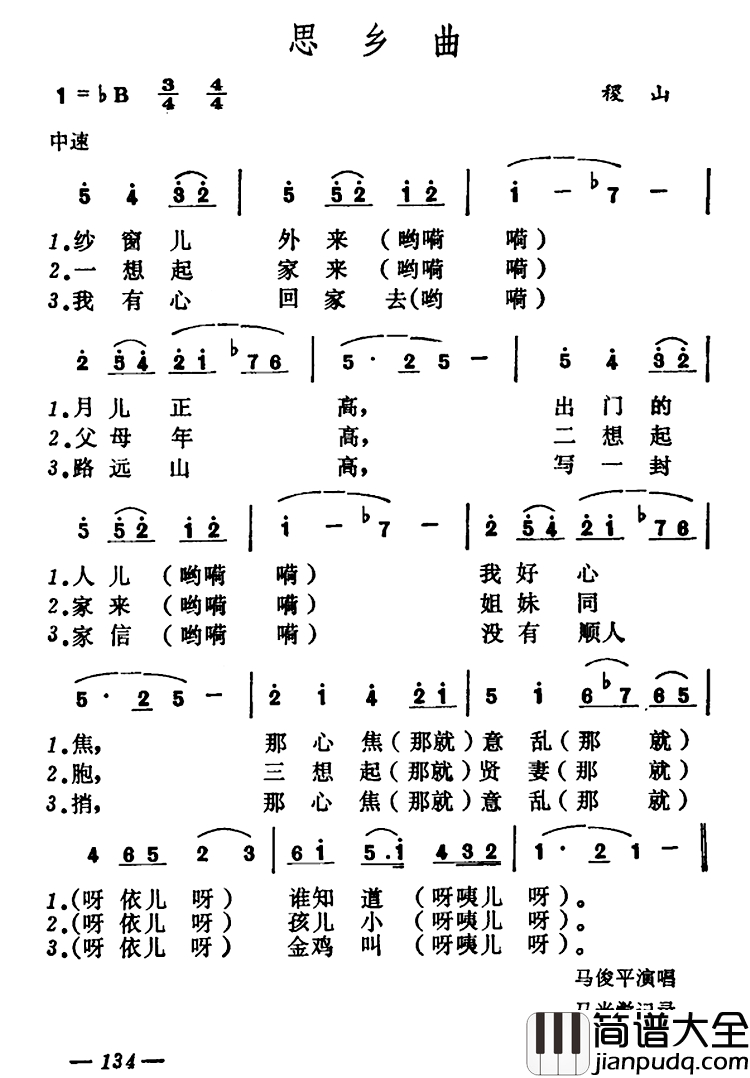 思乡曲
1=♭B 3/4 4/4 稷山
中速
5̇ 4̇ 3̇2̇ | 5̇ 5̇2̇ 1̇2̇ | 1̇ － ♭7 － |
1.纱窗儿 外来(哟嗬 嗬)
2.一想起 家来(哟嗬 嗬)
3.我有心 回家去(哟 嗬)
2̇ 5̇4̇ 2̇1̇ ♭76 | 5· 2 5 － | 5̇ 4̇ 3̇2̇ |
1.月儿正 高, 出门的
2.父母年 高, 二想起
3.路远山 高, 写一封
5̇ 5̇2̇ 1̇2̇ | 1̇ － ♭7 － | 2̇ 5̇4̇ 2̇1̇ ♭76 |
1.人儿(哟嗬 嗬) 我好心
2.家来(哟嗬 嗬) 姐妹同
3.家信(哟嗬 嗬) 没有顺人
5· 2 5 － | 2̇ 1̇ 4̇ 2̇1̇ | 5 1̇ 6♭7 65 |
1.焦, 那心焦(那就)意乱(那就)
2.胞, 三想起(那就)贤妻(那就)
3.捎, 那心焦(那就)意乱(那就)
4 65 2 3 | 61̇ 5.1̇ 432 | 1· 2 1 － ‖
1.(呀依儿呀) 谁知道(呀咦儿呀)。
2.(呀依儿呀) 孩儿小(呀咦儿呀)。
3.(呀依儿呀) 金鸡叫(呀咦儿呀)。
马俊平演唱
— 134 —
简谱大全
jianpudq.com